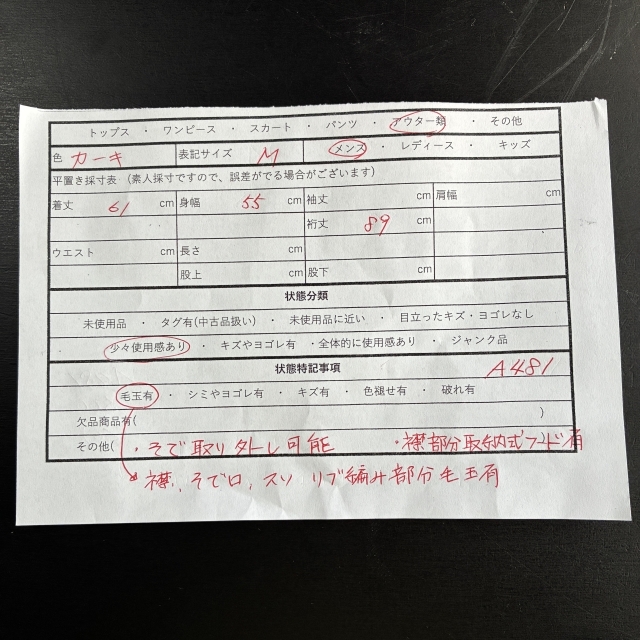 トップス ・ ワンピース ・ スカート ・ パンツ ・ アウター類 ・ その他
色 カーキ 表記サイズ M メンズ ・ レディース ・ キッズ
平置き採寸表 (素人採寸ですので、誤差がでる場合がございます)
着丈 61 cm 身幅 55 cm 袖丈 cm 肩幅 cm
裄丈 89 cm
ウエスト cm 長さ cm
股上 cm 股下 cm
状態分類
未使用品 ・ タグ有(中古品扱い) ・ 未使用品に近い ・ 目立ったキズ・ヨゴレなし
・ 少々使用感あり ・ キズやヨゴレ有 ・全体的に使用感あり ・ ジャンク品
状態特記事項 A481
毛玉有 ・ シミやヨゴレ有 ・ キズ有 ・ 色褪せ有 ・ 破れ有
欠品商品有( )
その他( ・そで取りタトレ可能 ・襟部分収納式フード有
襟、そで口、スソ リブ編み部分毛玉有